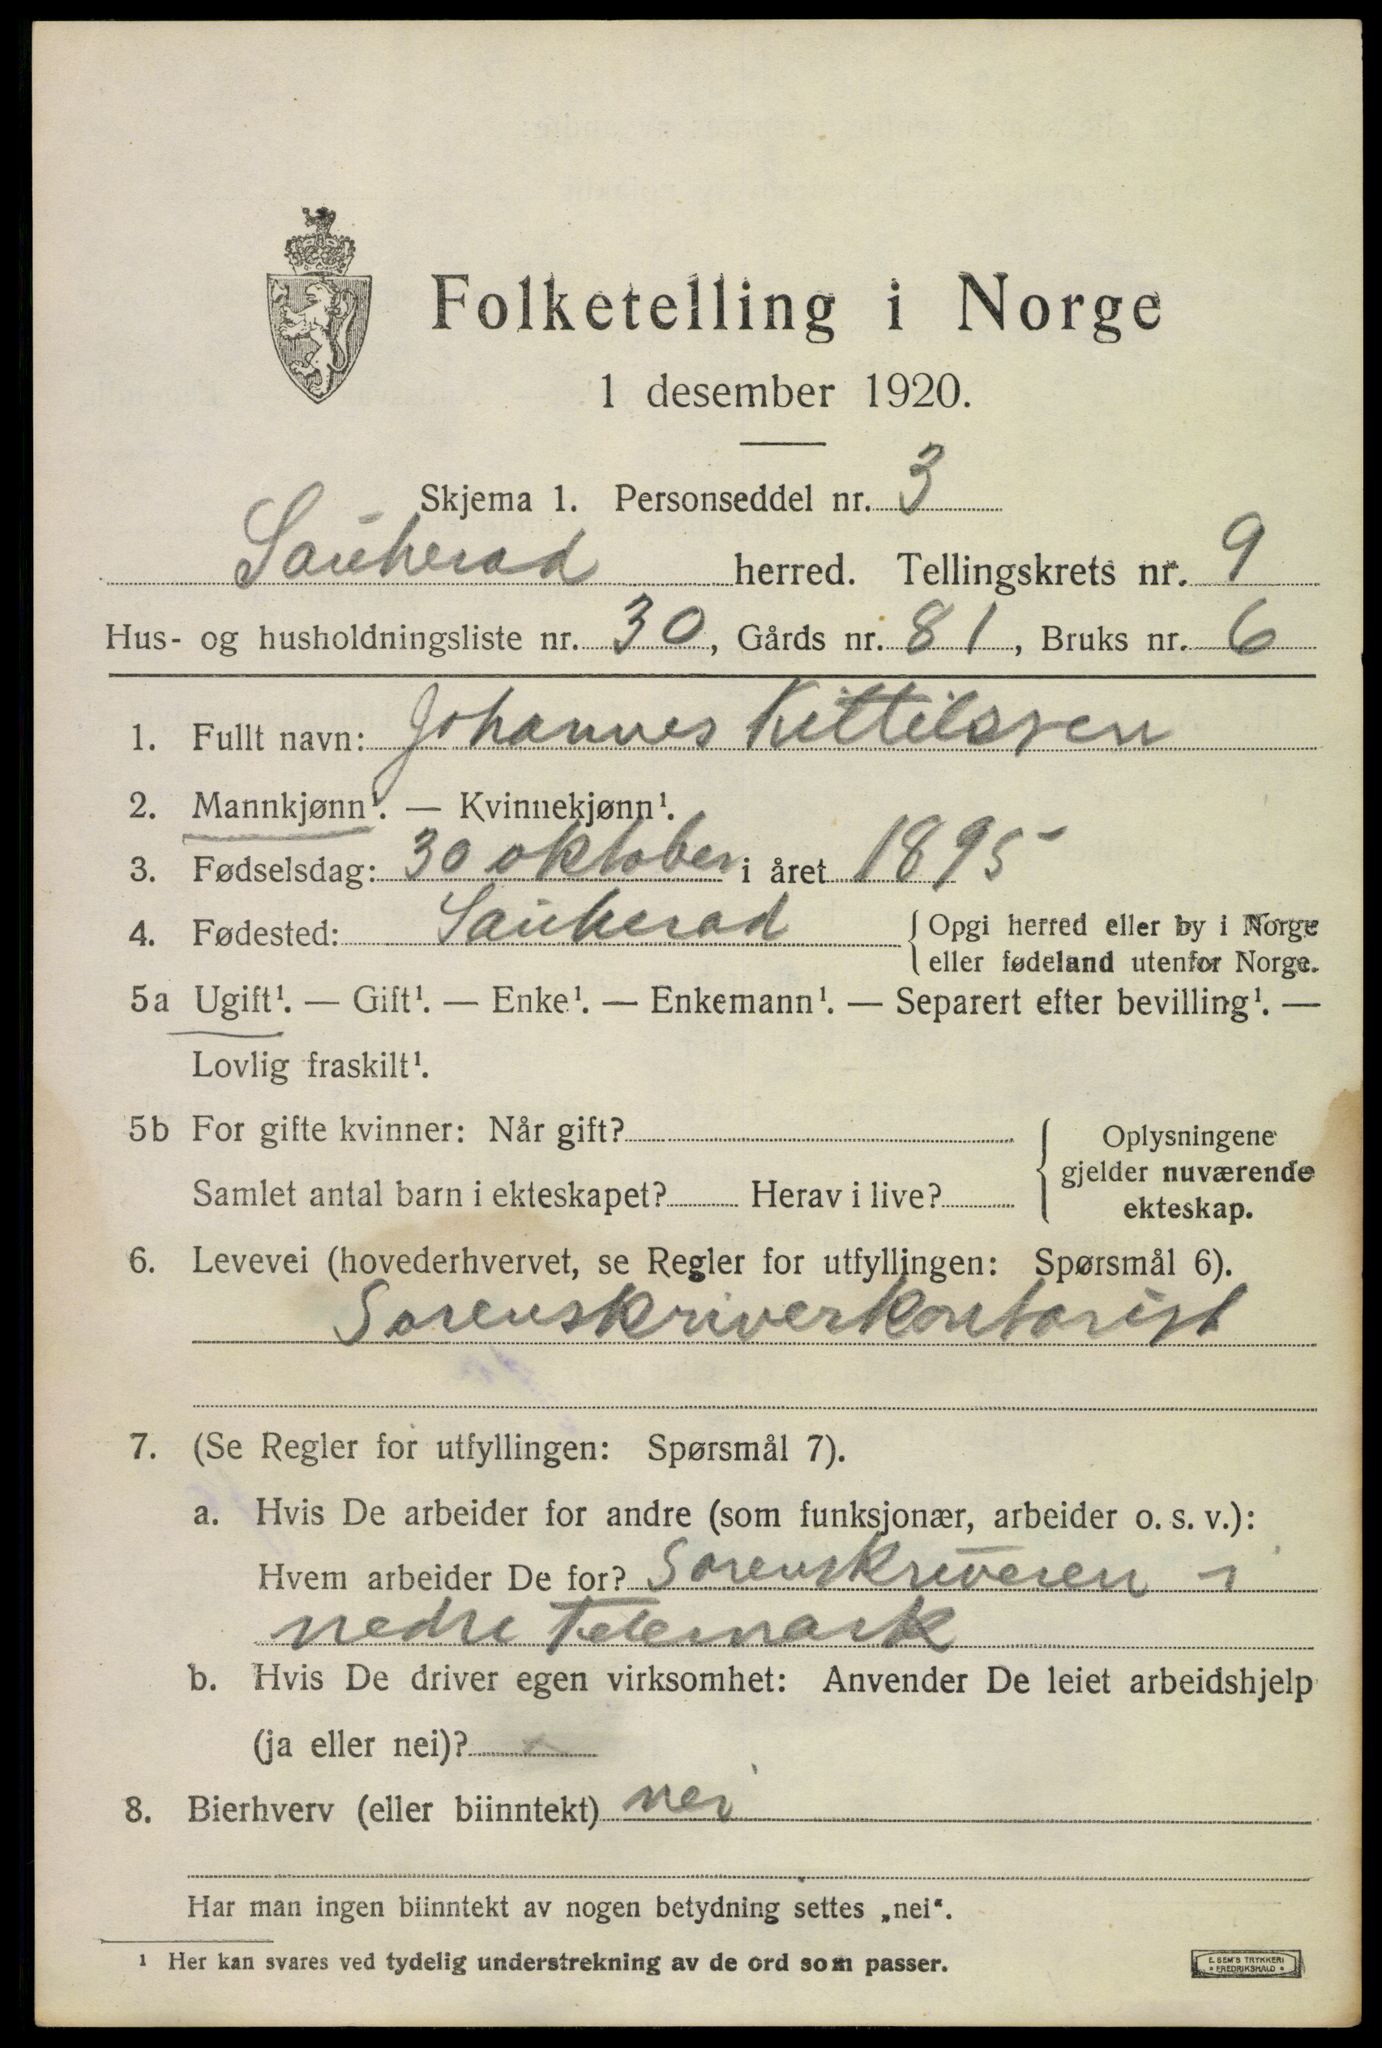 Folketelling i Norge
1 desember 1920.
Skjema 1. Personseddel nr. 3
Sauherad herred. Tellingskrets nr. 9
Hus- og husholdningsliste nr. 30, Gårds nr. 81, Bruks nr. 6
1. Fullt navn: Johannes Kittilsen
2. Mannkjønn¹. — Kvinnekjønn¹.
3. Fødselsdag: 30 oktober i året 1895
4. Fødested: Sauherad { Opgi herred eller by i Norge
eller fødeland utenfor Norge.
5a Ugift¹. — Gift¹. — Enke¹. — Enkemann¹. — Separert efter bevilling¹. —
Lovlig fraskilt¹.
5b For gifte kvinner: Når gift?
Samlet antal barn i ekteskapet? Herav i live?
Oplysningene
gjelder nuværende
ekteskap.
6. Levevei (hovederhvervet, se Regler for utfyllingen: Spørsmål 6).
Sorenskriverkontorist
7. (Se Regler for utfyllingen: Spørsmål 7).
a. Hvis De arbeider for andre (som funksjonær, arbeider o. s. v.):
Hvem arbeider De for? Sorenskriveren i
nedre Telemark
b. Hvis De driver egen virksomhet: Anvender De leiet arbeidshjelp
(ja eller nei)?
8. Bierhverv (eller biinntekt) nei
Har man ingen biinntekt av nogen betydning settes „nei".
¹ Her kan svares ved tydelig understrekning av de ord som passer.
E. SEM'S TRYKKERI
* FREDRIKSHALD *